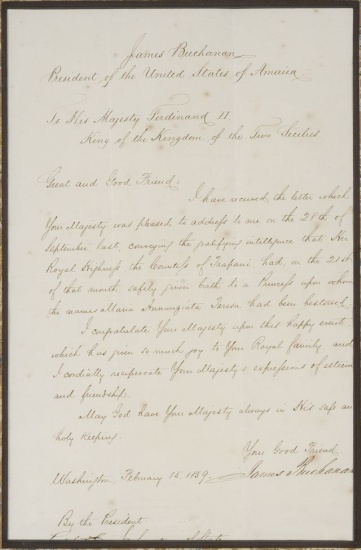 James Buchanan
President of the United States of America
To His Majesty Ferdinand II
King of the Kingdom of the Two Sicilies
Great and Good Friend:
I have received the letter which
Your Majesty was pleased to address to me on the 28th of
September last, conveying the gratifying intelligence that Her
Royal Highness the Countess of Trapani had, on the 21st
of that month safely given birth to a Princess upon whom
the names Maria Annunziata Teresa had been bestowed.
I congratulate Your Majesty upon this happy event
which has given so much joy to Your Royal family and
I cordially reciprocate Your Majesty's expressions of esteem
and friendship.
May God have Your Majesty always in His safe and
holy keeping.
Your Good Friend,
James Buchanan
Washington, February 15 1859
By the President
of State